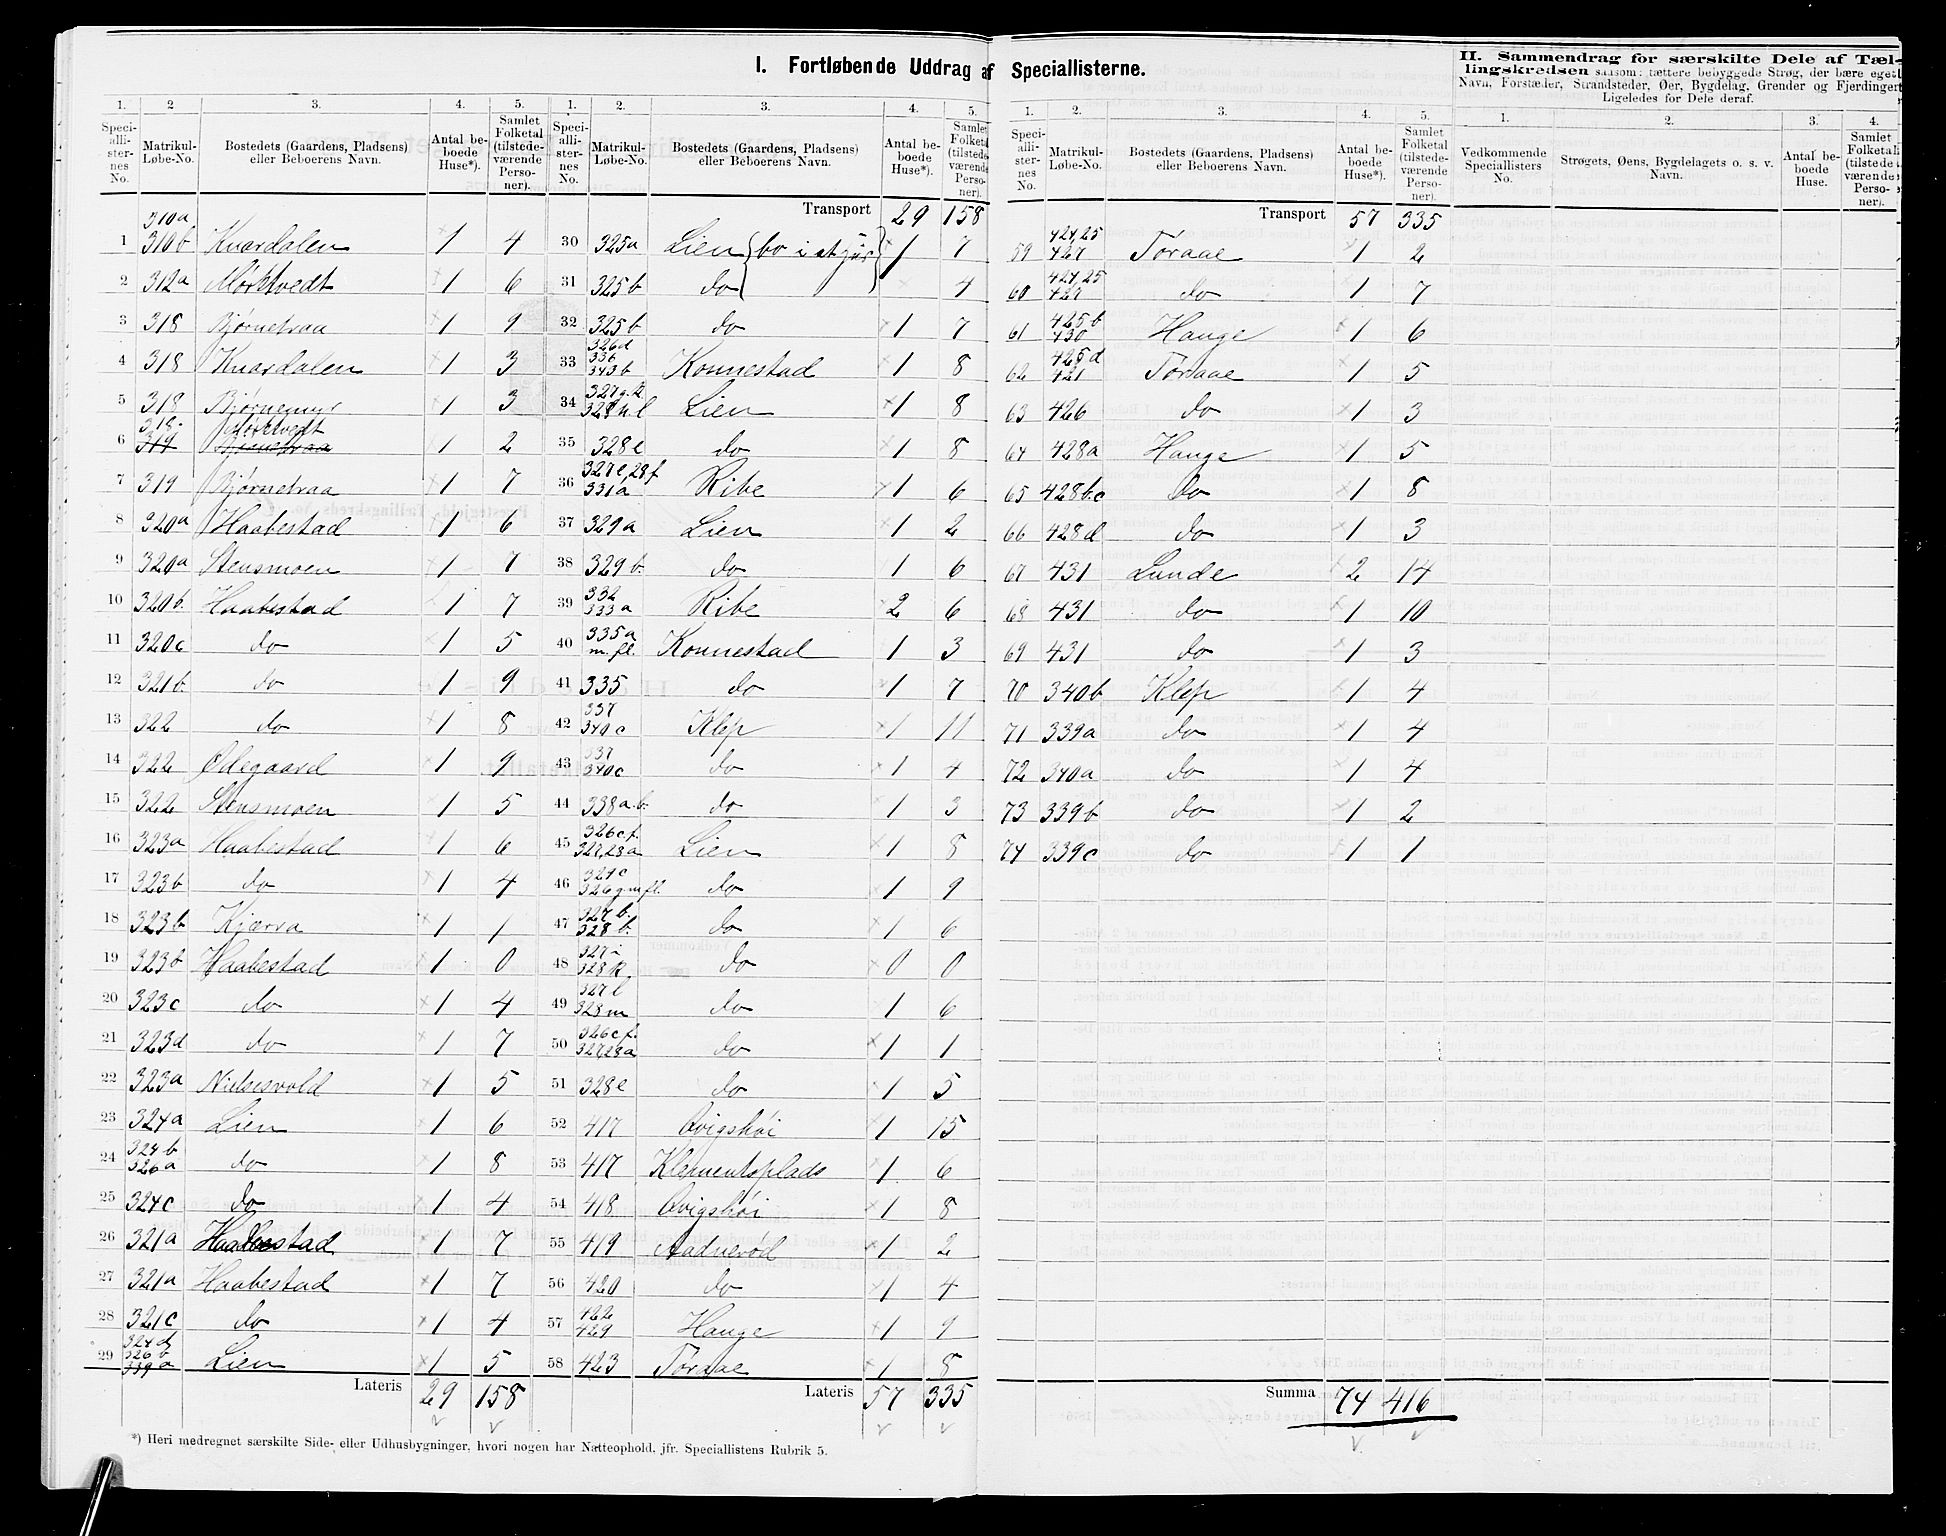 I. Fortløbende Uddrag af Speciallisterne.
II. Sammendrag for særskilte Dele af Tællingskredsen saasom: tættere bebyggede Strøg, der bære eget Navn, Forstæder, Strandsteder, Øer, Bygdelag, Grender og Fjerdinger. Ligeledes for Dele deraf.
1. 2 3. 4. 5.
Speciallisternes No. Matrikul-Løbe-No. Bostedets (Gaardens, Pladsens) eller Beboerens Navn. Antal beboede Huse*). Samlet Folketal (tilstedeværende Personer).
1 310a 310b Knardalen 1 4
2 312a Mørktvedt 1 6
3 318 Bjørnetraa 1 9
4 318 Knardalen 1 3
5 318 Bjørnemyr 1 3
6 318. 319 Mørktvedt Bjørnetraa 1 2
7 319 Bjørnetraa 1 7
8 320a Haabestad 1 6
9 320a Stensmoen 1 7
10 320b. Haabestad 1 7
11 320c do 1 5
12 321b. do 1 9
13 322 do 1 8
14 322 Ødegaard 1 9
15 322 Stensmoen 1 5
16 323a Haabestad 1 6
17 323b do 1 4
18 323b Kjærra 1 1
19 323b Haabestad 1 0
20 323c do 1 4
21 323d do 1 7
22 323a Nielsesvold 1 5
23 324a Lien 1 6
24 324b 326a do 1 8
25 324c do 1 4
26 321a Haabestad 1 7
27 321a Haabestad 1 7
28 321c do 1 4
29 324d 326b 339a Lien 1 5
Lateris 29 158
1. 2. 3. 4. 5.
Speciallisternes No. Matrikul-Løbe-No. Bostedets (Gaardens, Pladsens) eller Beboerens Navn. Antal beboede Huse*). Samlet Folketal (tilstedeværende Personer).
Transport 29 158
30 325a Lien 1 7
31 325b do 4
32 325b do 1 7
33 326d 336 343b Konnestad 1 8
34 327g.k 328 h l Lien 1 8
35 328e do 1 8
36 327e, 28f 331a Ribe 1 6
37 329a Lien 1 2
38 329b. do 1 6
39 332 333a Ribe 2 6
40 335a m.fl. Konnestad 1 3
41 335 do 1 7
42 337 340c Klep 1 11
43 337 340c do 1 4
44 338a.b. do 1 3
45 326c.f. 327,28a Lien 1 8
46 324c 326g m.fl. do 1 9
47 327b. 328b. do 1 6
48 327i 328k. do 0 0
49 327l 328m do 1 6
50 326c.f. 327,28a do 1 1
51 328e do 1 5
52 417 Qvigshöi 1 15
53 417 Klementsplads 1 6
54 418 Qvigshöi 1 8
55 419 Aadneröd 1 2
56 420 do 1 4
57 422 429 Hauge 1 9
58 423 Töraae 1 8
Lateris 57 335
*) Heri medregnet særskilte Side- eller Udhusbygninger, hvori nogen har Natteophold, jfr. Speciallistens Rubrik 5.
1. 2. 3. 4. 5.
Speciallisternes No. Matrikul-Løbe-No. Bostedets (Gaardens, Pladsens) eller Beboerens Navn. Antal beboede Huse*). Samlet Folketal (tilstedeværende Personer).
Transport 57 335
59 424,25 427 Töraae 1 2
60 424,25 427 do 1 7
61 425b 430 Hauge 1 6
62 425d 421 Töraae 1 5
63 426 do 1 3
64 428a Hauge 1 5
65 428b.c do 1 8
66 428d do 1 3
67 431 Lunde 2 14
68 431 do 1 10
69 431 do 1 3
70 340b Klep 1 4
71 339a do 1 4
72 340a do 1 4
73 339b do 1 2
74 339c do 1 1
Summa 74 416
1. 2. 3. 4.
Vedkommende Speciallisters No. Strøgets, Øens, Bygdelagets o. s. v. Navn. Antal beboede Huse. Samlet Folketal (tilstedeværende Personer).